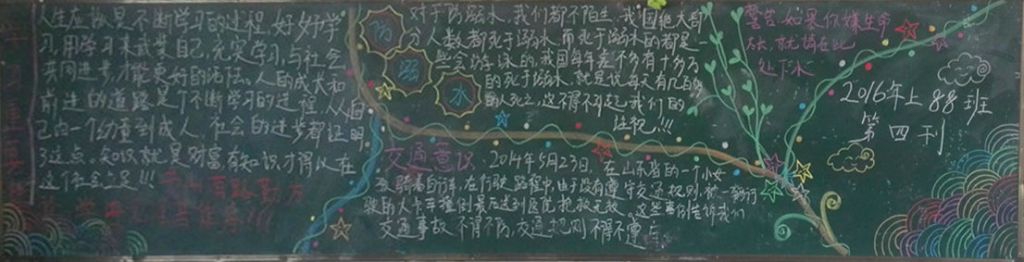 人生应做是不断学习的过程,好好学
习,用学习来武装自己,充实学习,与社会
共同进步,才能更好的生活。人的成长和
前进的道路是个不断学习的过程,从自
己的一个幼童到成人,社会的进步都证明
了这点。知识就是财富,有知识才得以在
这个社会立足!!!
防
溺
水
对于防溺水,我们都不陌生,我国绝大部
分人数都死于溺水,而死于溺水的都是一
些会游泳的,我国每年差不多有十多万
的死于溺水,就是说每天有几百的
的人死亡,这不得不引起我们的
重视!!!
交通意识
2014年5月23日,在山东省的一个小女
孩骑着自行车,在行驶路程中由于没有遵守交通规则,被一辆行
驶的大卡车撞倒,最后送到医院抢救无效。这些事例告诉我们
交通事故不得不防,交通规则不得不遵守
警告:如果你嫌生命
太长,就请在此
处下水
2016年上88班
第四刊